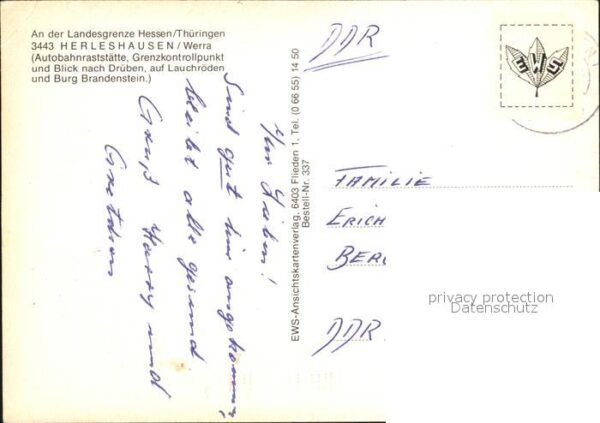 An der Landesgrenze Hessen/Thüringen
3443 HERLESHAUSEN/Werra
(Autobahnraststätte, Grenzkontrollpunkt
und Blick nach Drüben, auf Lauchröden
und Burg Brandenstein.)
Ihr Lieben!
Sind gut hier angekommen,
bleibt alle gesund
Gruß Harry und
EWS-Ansichtskartenverlag, 6403 Flieden 1, Tel. (0 66 55) 14 50
Bestell-Nr. 337
DDR
EWS
FAMILIE
ERICH
BER
DDR
privacy protection
Datenschutz